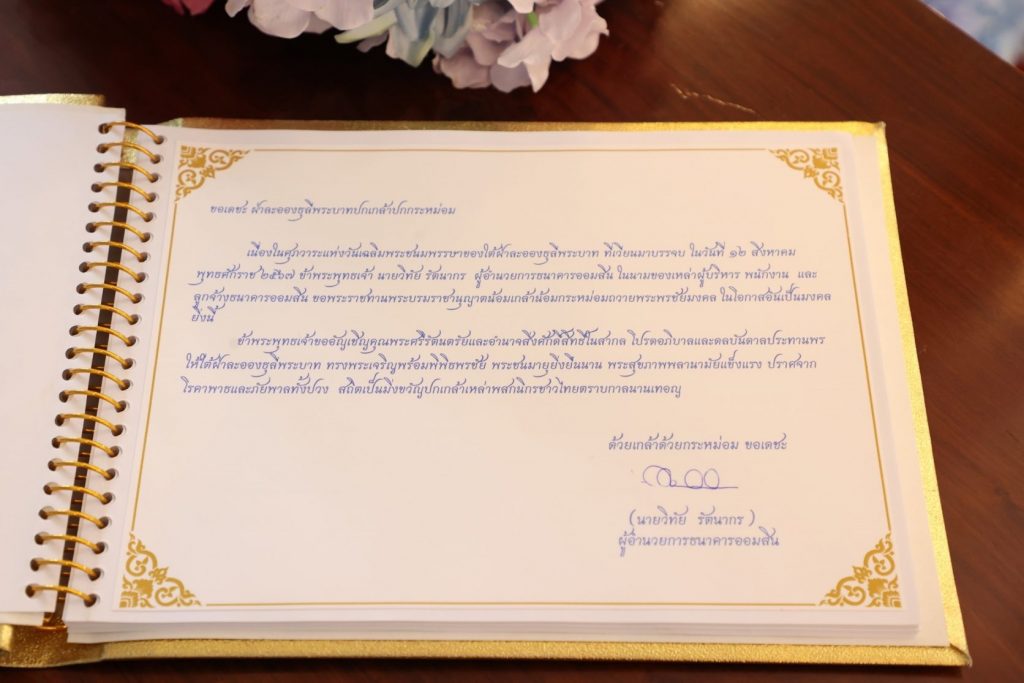 ขอเดชะ ฝ่าละอองธุลีพระบาทปกเกล้าปกกระหม่อม
เนื่องในศุภวาระแห่งวันเฉลิมพระชนมพรรษาของใต้ฝ่าละอองธุลีพระบาท ที่เวียนมาบรรจบ ในวันที่ ๑๒ สิงหาคม
พุทธศักราช ๒๕๖๗ ข้าพระพุทธเจ้า นายวิทัย รัตนากร ผู้อำนวยการธนาคารออมสิน ในนามของเหล่าผู้บริหาร พนักงาน และ
ลูกจ้างธนาคารออมสิน ขอพระราชทานพระบรมราชานุญาตน้อมเกล้าน้อมกระหม่อมถวายพระพรชัยมงคล ในโอกาสอันเป็นมงคล
ยิ่งนี้
ข้าพระพุทธเจ้าขออัญเชิญคุณพระศรีรัตนตรัยและอำนาจสิ่งศักดิ์สิทธิ์ในสากล โปรดอภิบาลและดลบันดาลประทานพร
ให้ใต้ฝ่าละอองธุลีพระบาท ทรงพระเจริญพร้อมพิพิธพรชัย พระชนมายุยิ่งยืนนาน พระสุขภาพพลานามัยแข็งแรง ปราศจาก
โรคาพาธและภัยพาลทั้งปวง สถิตเป็นมิ่งขวัญปกเกล้าเหล่าพสกนิกรชาวไทยตราบกาลนานเทอญ
ด้วยเกล้าด้วยกระหม่อม ขอเดชะ
(นายวิทัย รัตนากร)
ผู้อำนวยการธนาคารออมสิน